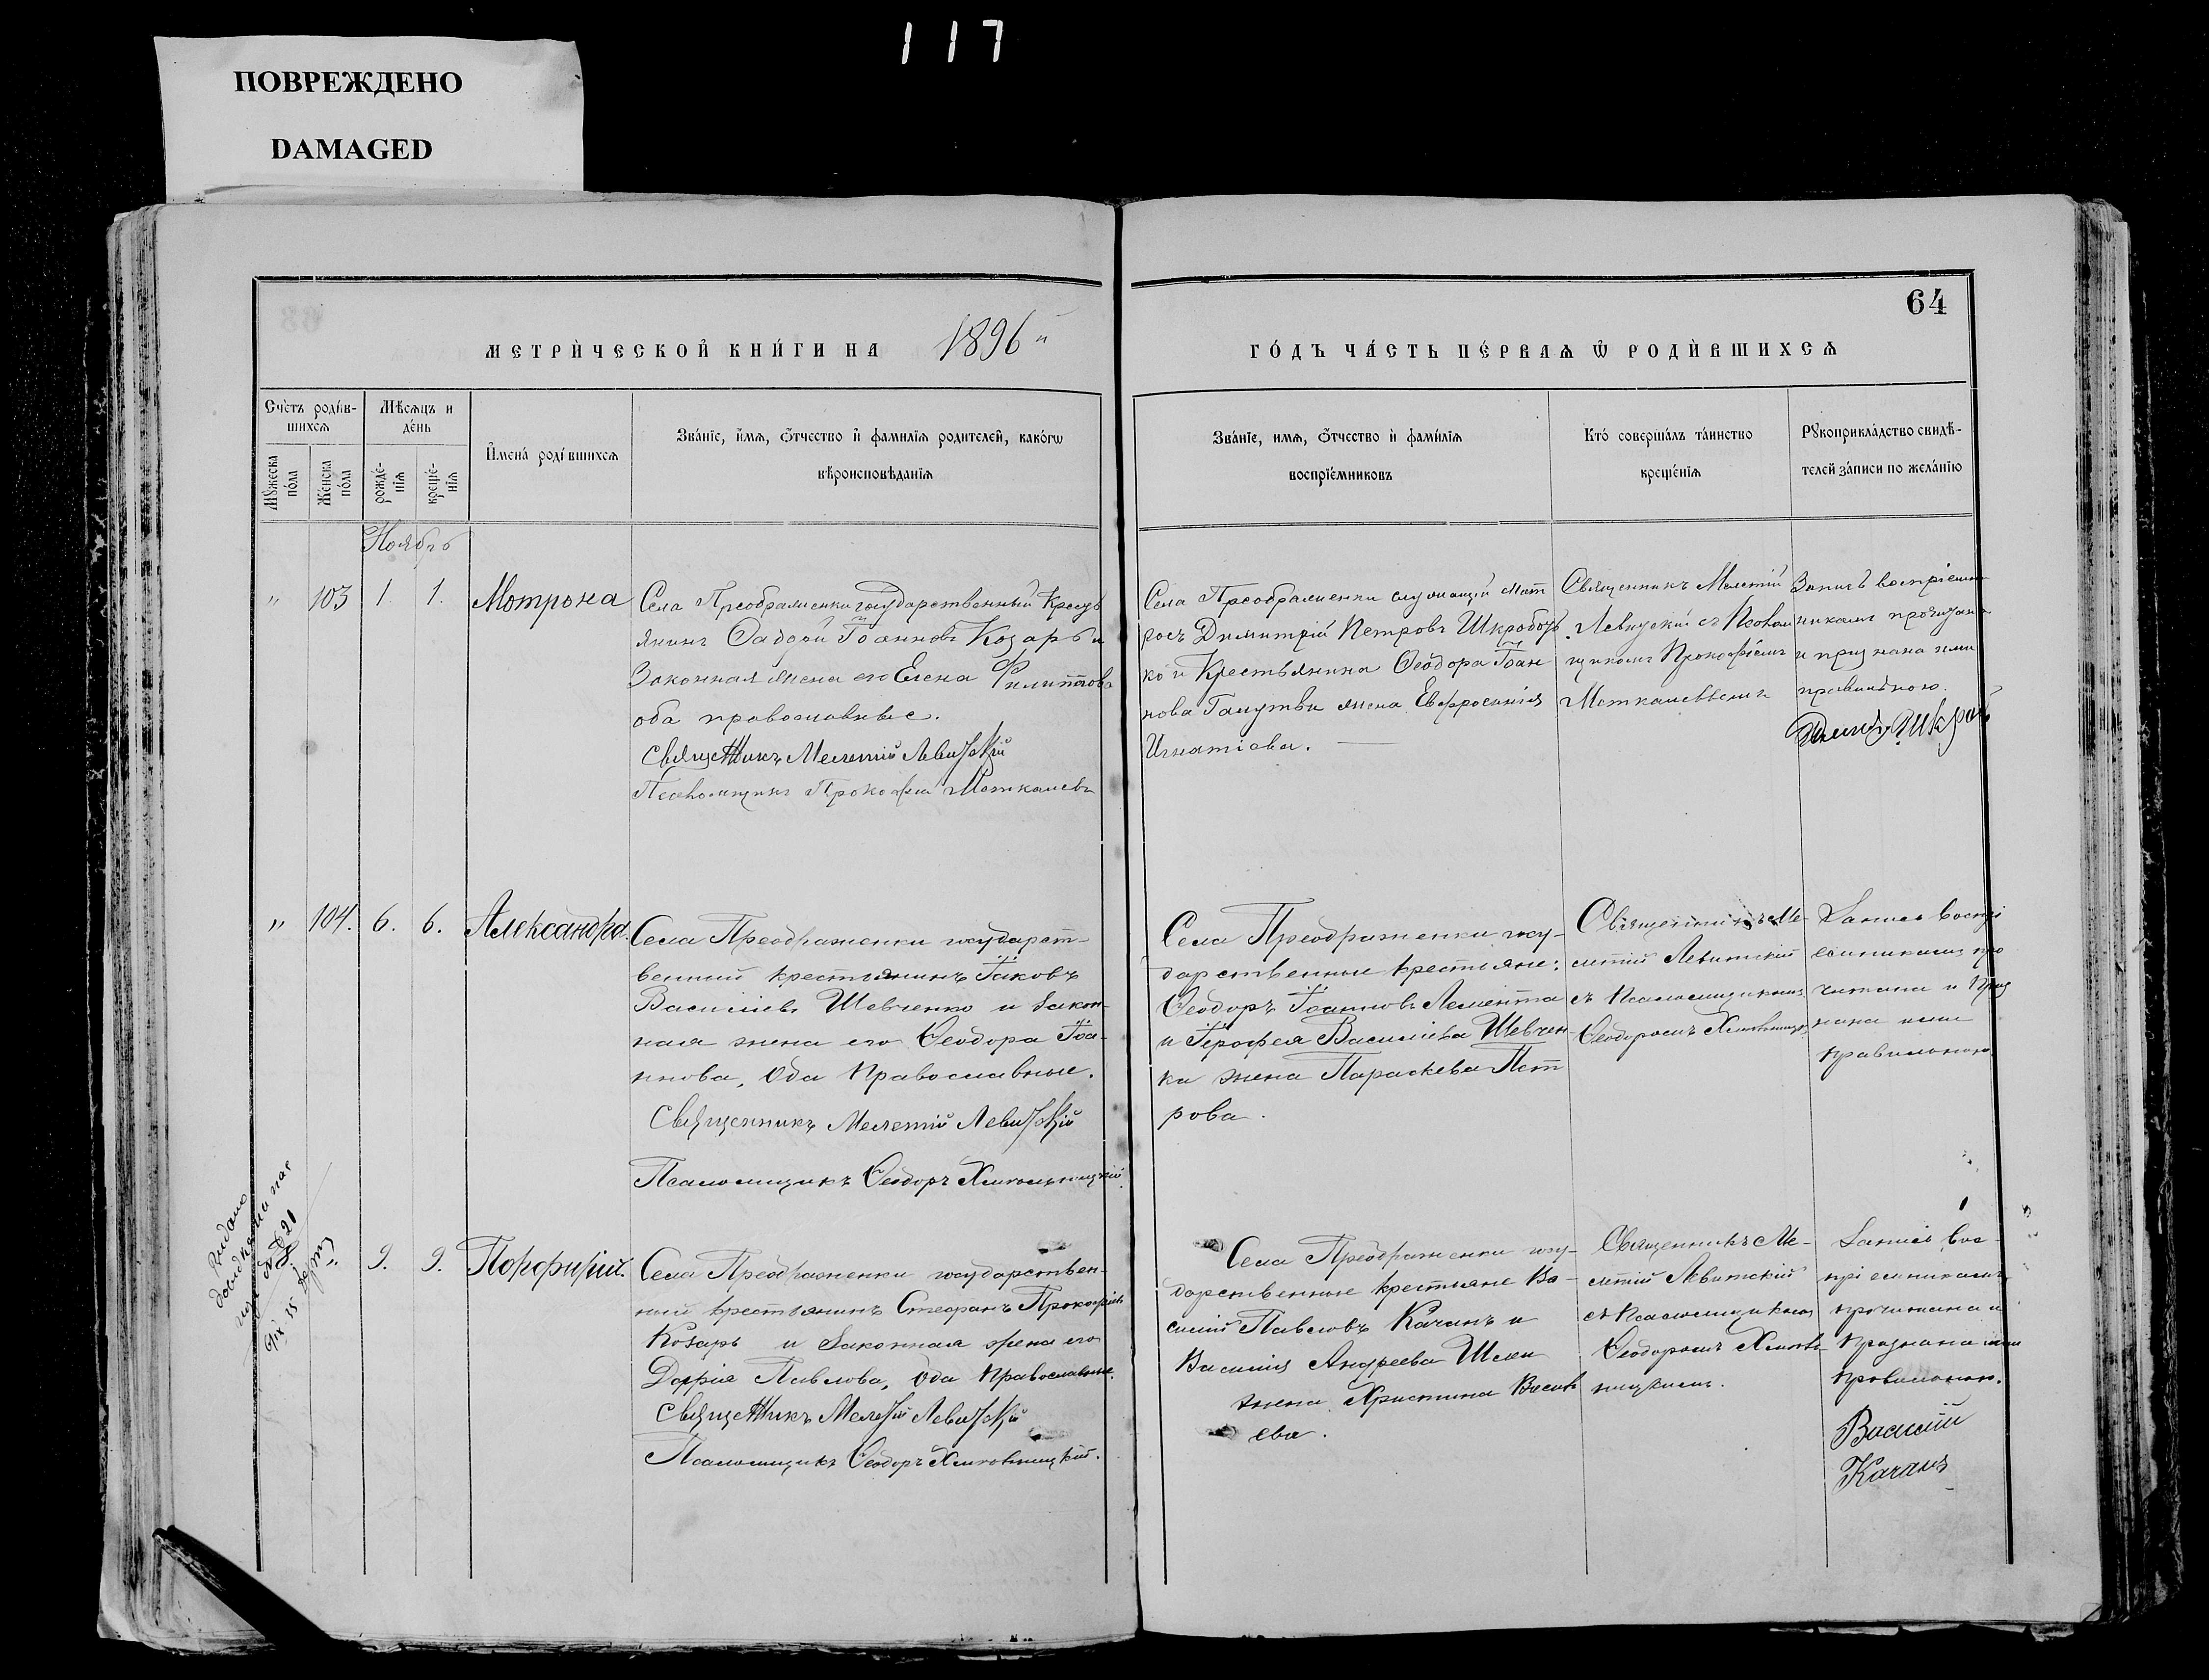 117
ПОВРЕЖДЕНО
DAMAGED
64
МЕТРИ́ЧЕСКОЙ КНИ́ГИ НА 1896 й
ГО́ДЪ ЧА́СТЬ ПЕ́РВАѦ Ѿ РОДИ́ВШИХСѦ
Счетъ роди́в-
шихсѧ
Мѣсѧцъ и
де́нь
Мꙋжеска
по́ла
Же́нска
по́ла
рожде́-
нїѧ
креще́-
нїѧ
И҆мена́ роди́вшихсѧ
Зва́нїе, и҆́мѧ, ѻ҆́тчество и҆ фамилїѧ родителей, како́гѡ
вѣроисповѣ́данїѧ
Зва́нїе, имѧ, ѻ҆́тчество и҆ фами́лїѧ
воспрїе́мниковъ
Кто́ соверша́лъ та́инство
креще́нїѧ
Рꙋкоприкла́дство свидѣ́-
телей за́писи по жела́нїю
Ноябрь
„ 103 1. 1. Мотрона
Села Преображенки государственный Кресть
янинъ Іоанновъ Козарь и
Законная жена его Елена Филиппова
оба православные.
Священникъ Мелетій Левицкій
Псаломщикъ Прокофій
Села Преображенки служащій мат
росъ Димитрій Петровъ Шкробот
ко и Крестьянина Ѳеодора Іоан
нова жена Евфросинія
Игнатіева.
Священникъ Мелетій
Левицкій съ Псалом
щикомъ Прокофіемъ
Запись воспріемни
никами прочитана
и признана ими
правильною.
„ 104. 6. 6. Александра.
Села Преображенки государст-
венный крестьянинъ Іаковъ
Васильевъ Шевченко и закон-
ная жена его Ѳеодора Іоа-
ннова, оба Православные.
Священникъ Мелетій Левицкій
Псаломщикъ Ѳеодоръ Хмельницкій.
Села Преображенки госу-
дарственные крестьяне:
Ѳеодоръ Іоанновъ Лемента
и Іерофея Васильева Шевчен-
ка жена Параскева Пет
рова.
Священникъ Ме-
летій Левитскій
съ Псаломщикомъ
Ѳеодоромъ
Запись воспрі
емниками про
читана и приз
нана ими
правильною.
Видано
21
„ 9. 9. Порфирій.
Села Преображенки государствен-
ный крестьянинъ Стефанъ Прокофіевъ
Козарь и законная жена его
Дарія Павлова, оба Православные.
Священникъ Мелетій Левицкій
Псаломщикъ Ѳеодоръ Хмельницкій.
Села Преображенки госу-
дарственные крестьяне Ва-
силій Павловъ Качанъ и
Василія Андреева
жена Христина Василь
ева.
Священникъ Ме-
летій Левитскій
съ Псаломщикомъ
Ѳеодоромъ Хмель-
ницкимъ.
Запись вос-
пріемниками
прочитана и
признана ими
правильною.
Василій
Качанъ